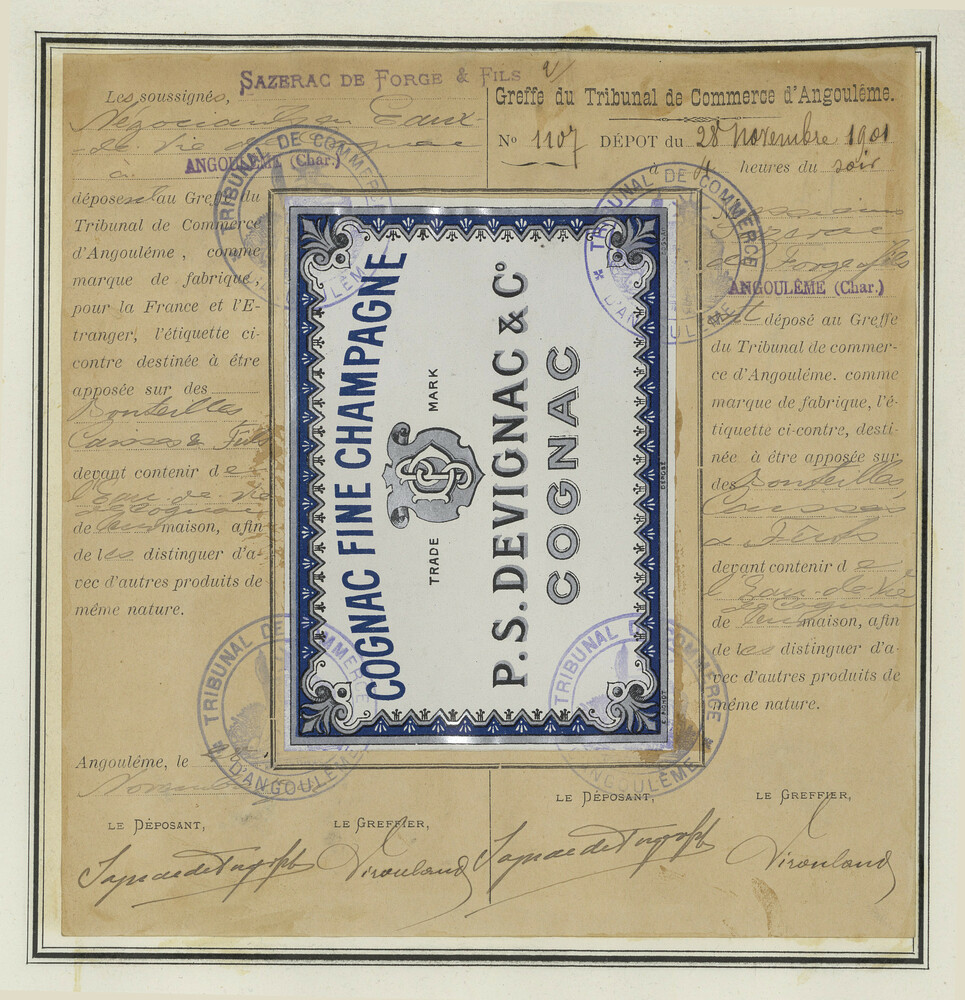 SAZERAC DE FORGE & FILS
Les soussignés,
Négociants en Eaux-
de-Vie de Cognac
à ANGOULÊME (Char.)
déposent au Greffe du
Tribunal de Commerce
d'Angoulême, comme
marque de fabrique,
pour la France et l'E-
tranger, l'étiquette ci-
contre destinée à être
apposée sur des
Bouteilles
Caisses & Fûts
devant contenir de
l'Eau-de-Vie
de Cognac
de leur maison, afin
de les distinguer d'a-
vec d'autres produits de
même nature.
Angoulême, le 28
Novembre
LE DÉPOSANT,
LE GREFFIER,
Virouland
Greffe du Tribunal de Commerce d'Angoulême.
No 1107 DÉPOT du 28 Novembre 1901
à 4 heures du soir
Messieurs
Sazerac
de Forge & fils
ANGOULÊME (Char.)
ont déposé au Greffe
du Tribunal de commer-
ce d'Angoulême. comme
marque de fabrique, l'é-
tiquette ci-contre, desti-
née à être apposée sur
des Bouteilles
Caisses
& Fûts
devant contenir de
l'Eau-de-Vie
de Cognac
de leur maison, afin
de les distinguer d'a-
vec d'autres produits de
même nature.
LE DÉPOSANT,
LE GREFFIER,
Virouland
COGNAC FINE CHAMPAGNE
TRADE MARK
P.S. DEVIGNAC & Co
COGNAC
DÉPOSÉ
TRIBUNAL DE COMMERCE
D'ANGOULÊME
TRIBUNAL DE COMMERCE
D'ANGOULÊME
TRIBUNAL DE COMMERCE
D'ANGOULÊME
TRIBUNAL DE COMMERCE
D'ANGOULÊME